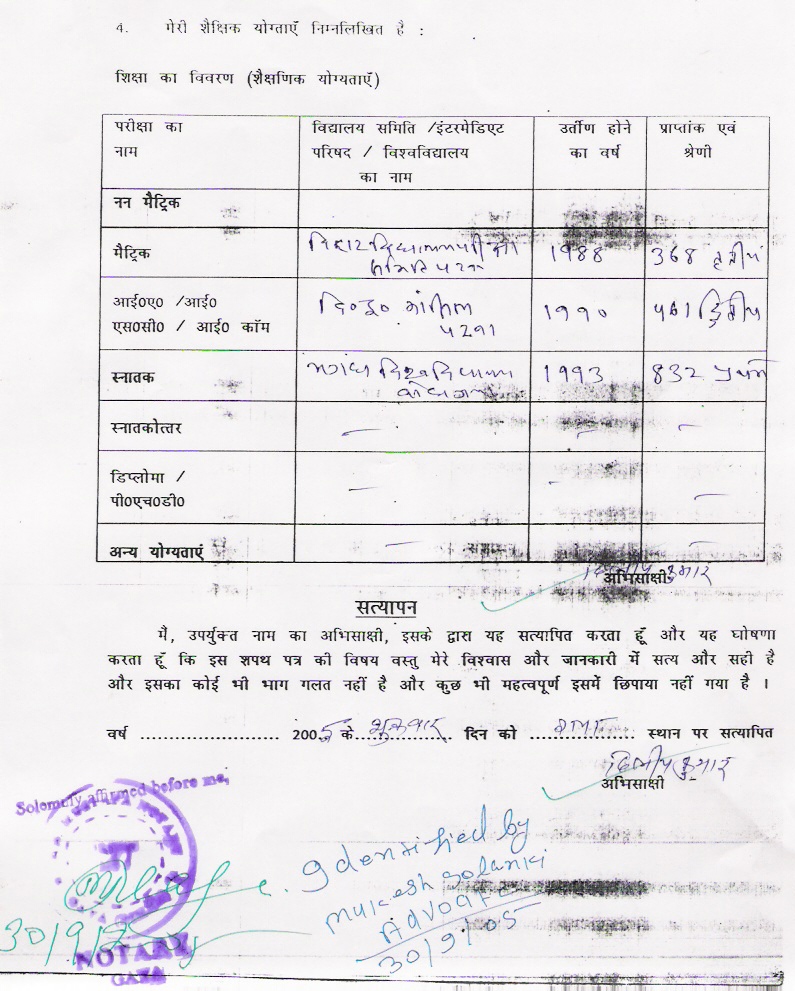 4. मेरी शैक्षिक योग्ताएँ निम्नलिखित है :
शिक्षा का विवरण (शैक्षणिक योग्यताएँ)
परीक्षा का नाम विद्यालय समिति /इंटरमेडिएट परिषद / विश्वविद्यालय का नाम उर्तीण होने का वर्ष प्राप्तांक एवं श्रेणी
नन मैट्रिक
मैट्रिक 1988 368
आई०ए० /आई०
एस०सी० / आई० कॉम पटना १९९०
स्नातक मगध विश्वविद्यालय 1993 832
स्नातकोत्तर — — —
डिप्लोमा /
पी०एच०डी० — — —
अन्य योग्यताएं — — —
कुमार
अभिसाक्षी
सत्यापन
मैं, उपर्युक्त नाम का अभिसाक्षी, इसके द्वारा यह सत्यापित करता हूँ और यह घोषणा
करता हूँ कि इस शपथ पत्र की विषय वस्तु मेरे विश्वास और जानकारी में सत्य और सही है
और इसका कोई भी भाग गलत नहीं है और कुछ भी महत्वपूर्ण इसमें छिपाया नहीं गया है ।
वर्ष ...................... 2005 के शुक्रवार दिन को ................ स्थान पर सत्यापित
दिलीप कुमार
अभिसाक्षी
Solemnly affirmed before me,
Identified by
Mukesh Solanki
Advocate
30/9/05
NOTARY
GAYA